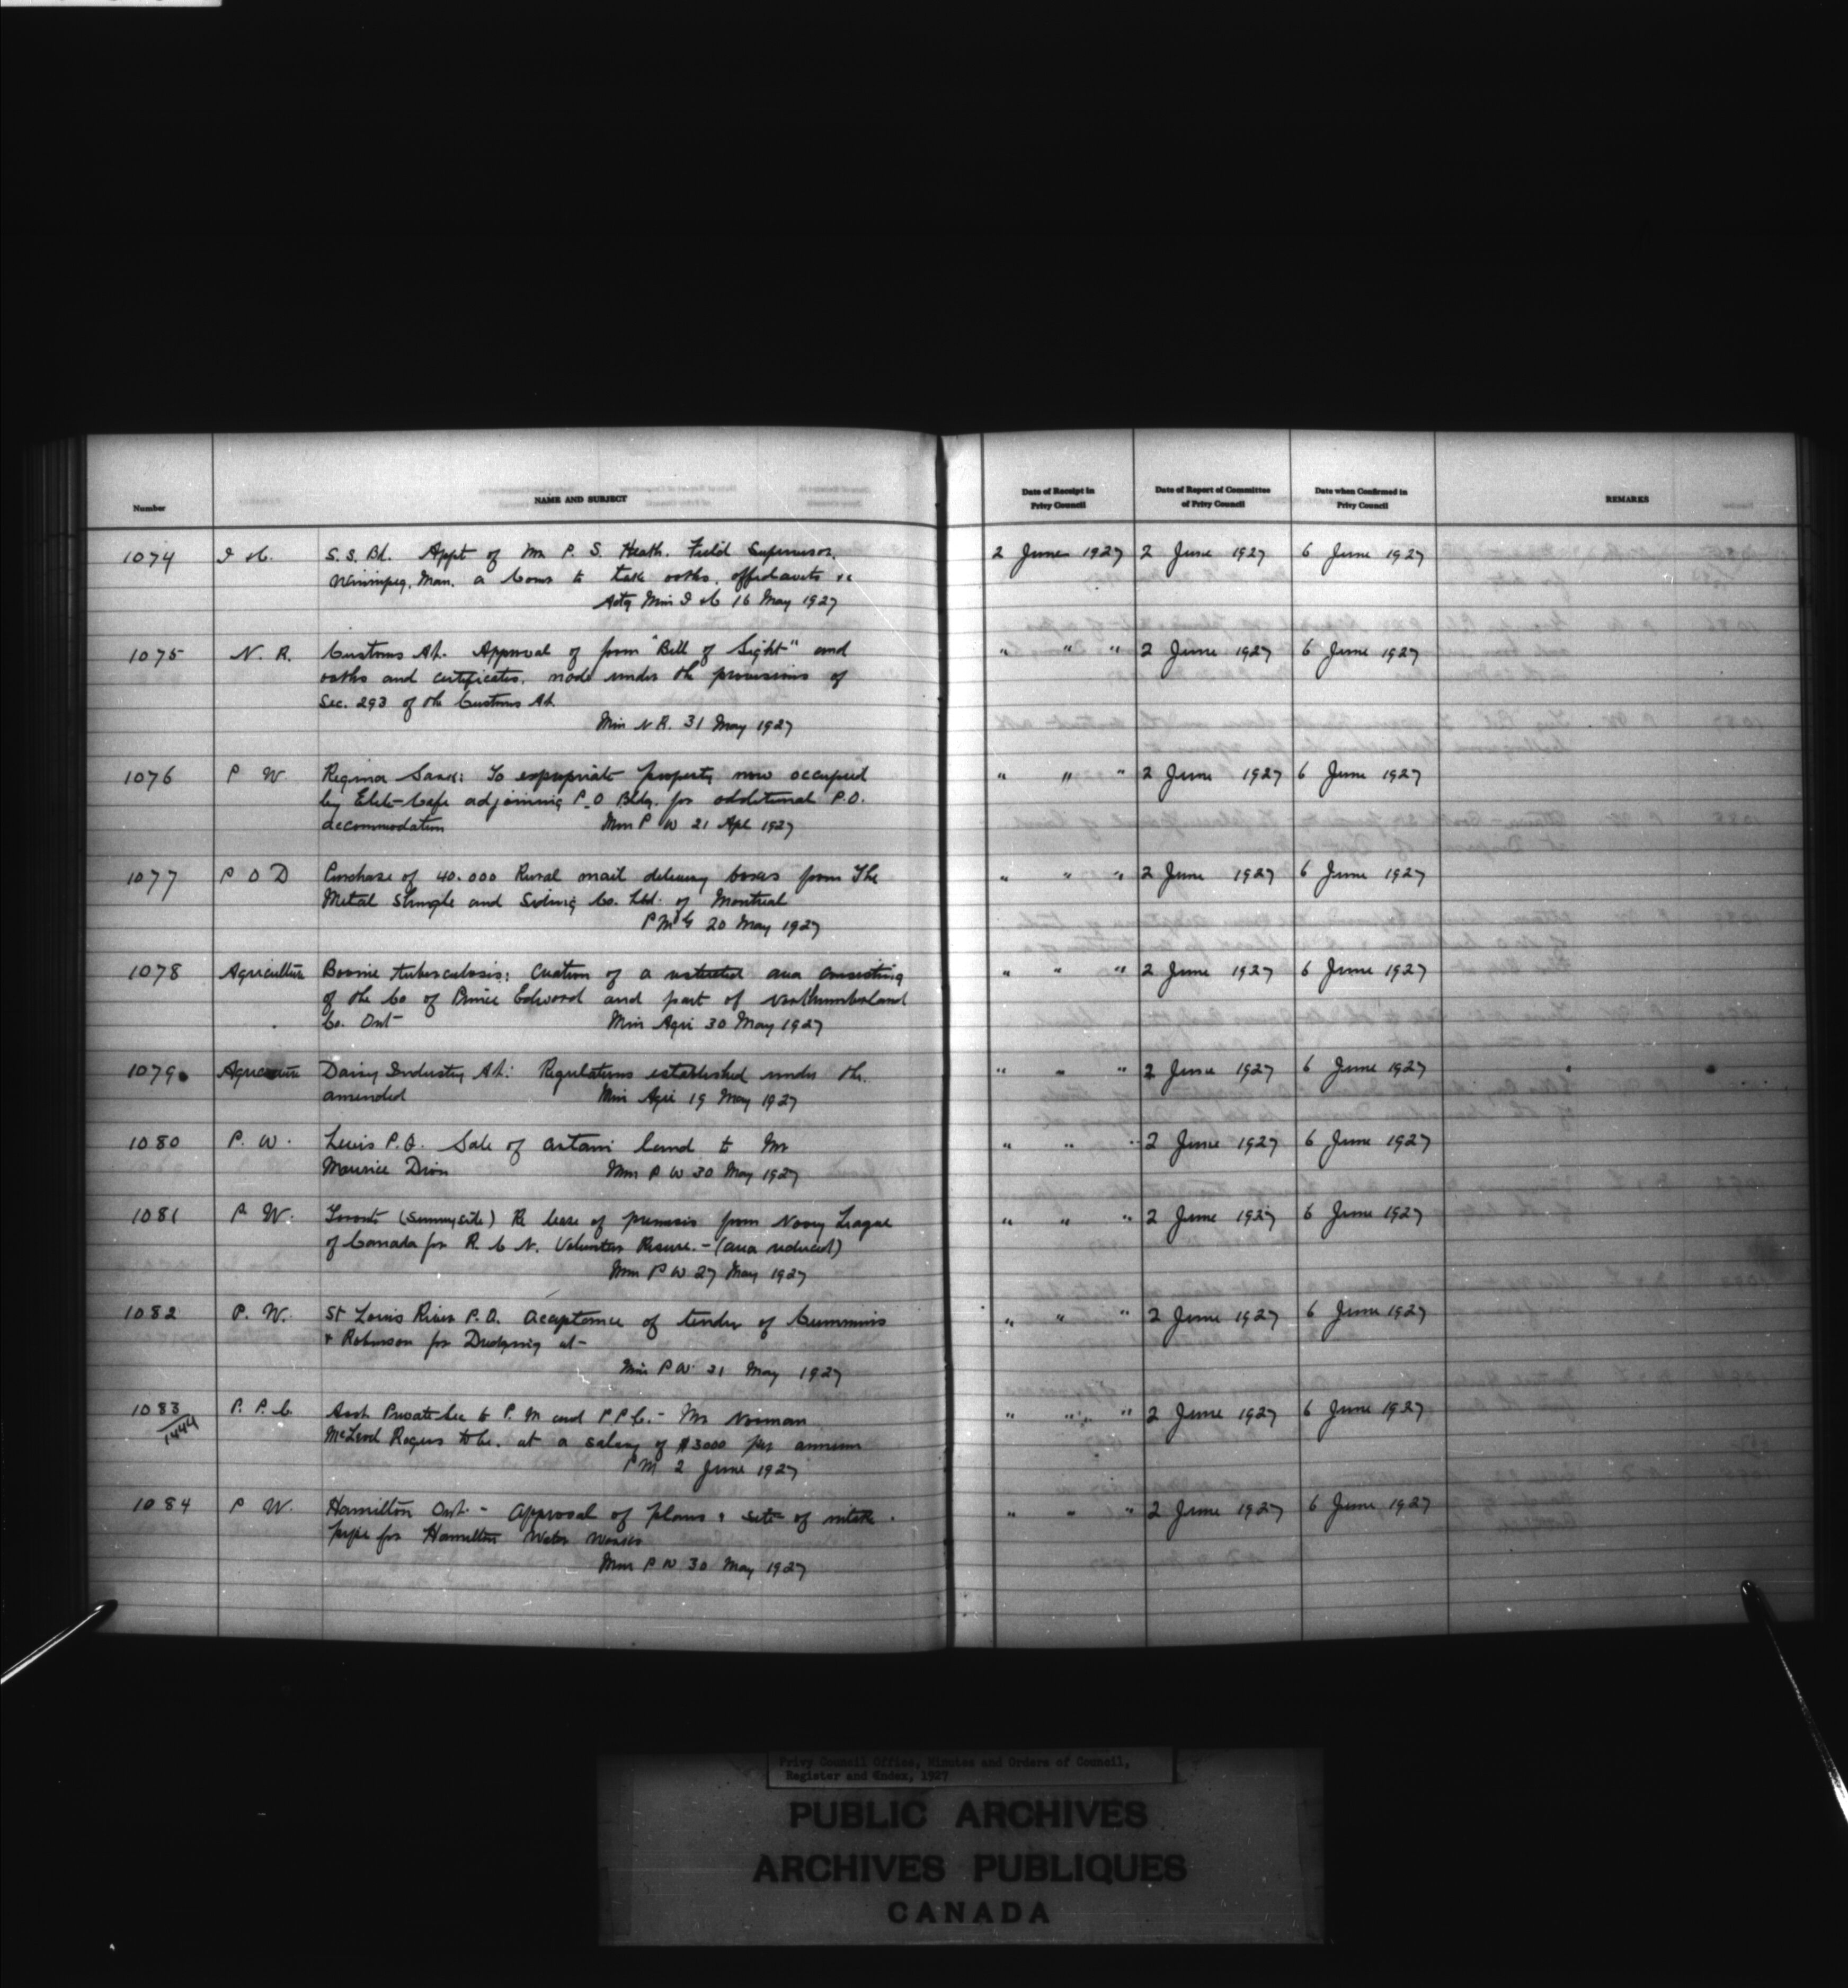 Number
NAME AND SUBJECT
Date of Receipt in
Privy Council
Date of Report of Committee
of Privy Council
Date when Confirmed in
Privy Council
REMARKS
1074 I & C. S. S. Bd. Appt of Mr P. S. Heath. Field Supervisor, 2 June 1927 2 June 1927 6 June 1927
Winnipeg, Man. a Comr to take oaths, affidavits &c
Actg Min I & C 16 May 1927
1075 N. R. Customs Act. Approval of form "Bill of Sight" and " " " 2 June 1927 6 June 1927
oaths and certificates, made under the provisions of
Sec. 293 of the Customs Act
Min N R. 31 May 1927
1076 P W. Regina Sask: To expropriate property now occupied " " " 2 June 1927 6 June 1927
by Elite Cafe adjoining P.O Bldg. for additional P.O.
accommodation Min P W 21 Apl 1927
1077 P O D Purchase of 40.000 Rural mail delivery boxes from The " " " 2 June 1927 6 June 1927
Metal Shingle and Siding Co. Ltd. of Montreal
P M G 20 May 1927
1078 Agriculture Bovine tuberculosis: Creation of a restricted area consisting " " " 2 June 1927 6 June 1927
of the Co of Prince Edward and part of Northumberland
Co. Ont Min Agri 30 May 1927
1079 Agriculture Dairy Industry Act: Regulations established under the, " " " 2 June 1927 6 June 1927
amended Min Agri 19 May 1927
1080 P. W. Levis P.Q. Sale of certain land to Mr " " " 2 June 1927 6 June 1927
Maurice Dion Min P W 30 May 1927
1081 P. W. Toronto (Sunnyside) Re lease of premises from Navy League " " " 2 June 1927 6 June 1927
of Canada for R. C N. Volunteer Reserve. - (area reduced)
Min P W 27 May 1927
1082 P. W. St Louis River P.Q. Acceptance of tender of Cummins " " " 2 June 1927 6 June 1927
& Robinson for Dredging at -
Min P W. 21 May 1927
1083 P. P. C. Asst. Private Sec to P. M and P P C. - Mr Norman " " " 2 June 1927 6 June 1927
1444
McLeod Rogers to be, at a salary of $3000 per annum
P M 2 June 1927
1084 P W. Hamilton Ont. - Approval of plans & site of intake " " " 2 June 1927 6 June 1927
pipe for Hamilton Water Works
Min P W 30 May 1927
Privy Council Office, Minutes and Orders of Council,
Register and Index, 1927
PUBLIC ARCHIVES
ARCHIVES PUBLIQUES
CANADA